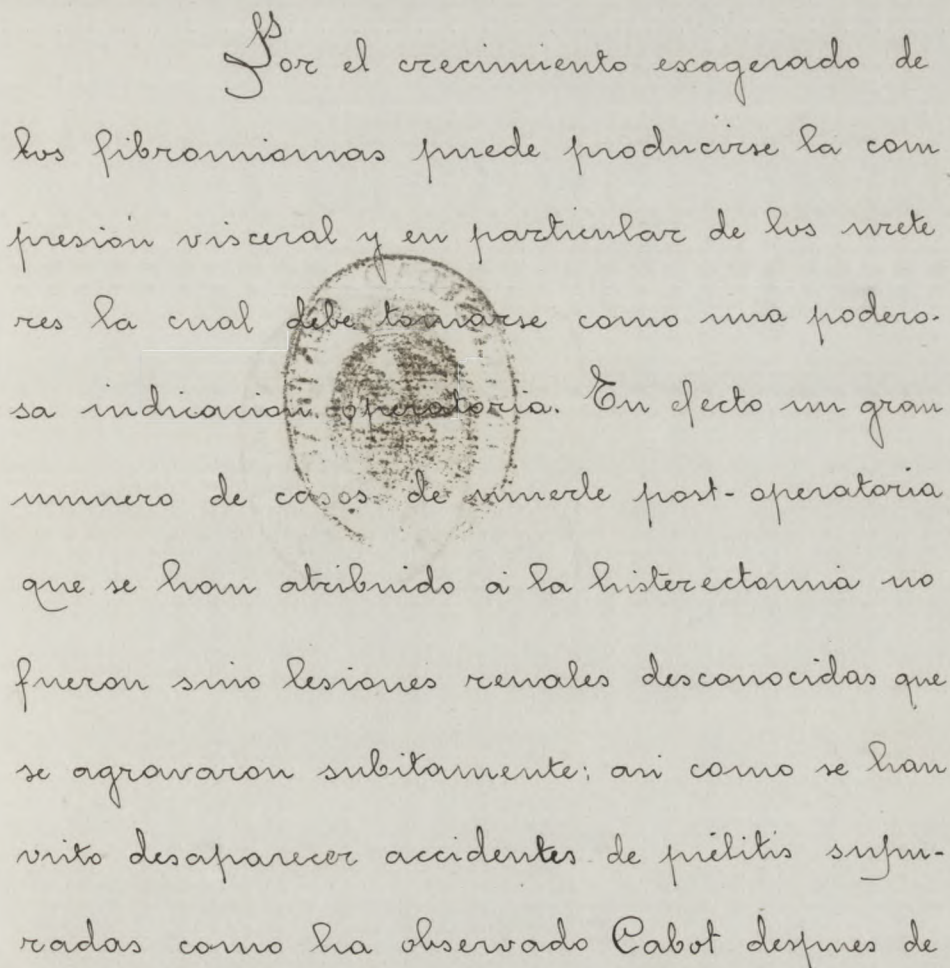 Por el crecimiento exagerado de
los fibromiomas puede producirse la com
presión visceral y en particular de los urete
res la cual debe tomarse como una podero-
sa indicación operatoria. En efecto un gran
numero de casos de muerte post-operatoria
que se han atribuido á la histerectomia no
fueron sino lesiones renales desconocidas que
se agravaron subitamente; asi como se han
visto desaparecer accidentes de piélitis supu-
radas como ha observado Cabot despues de